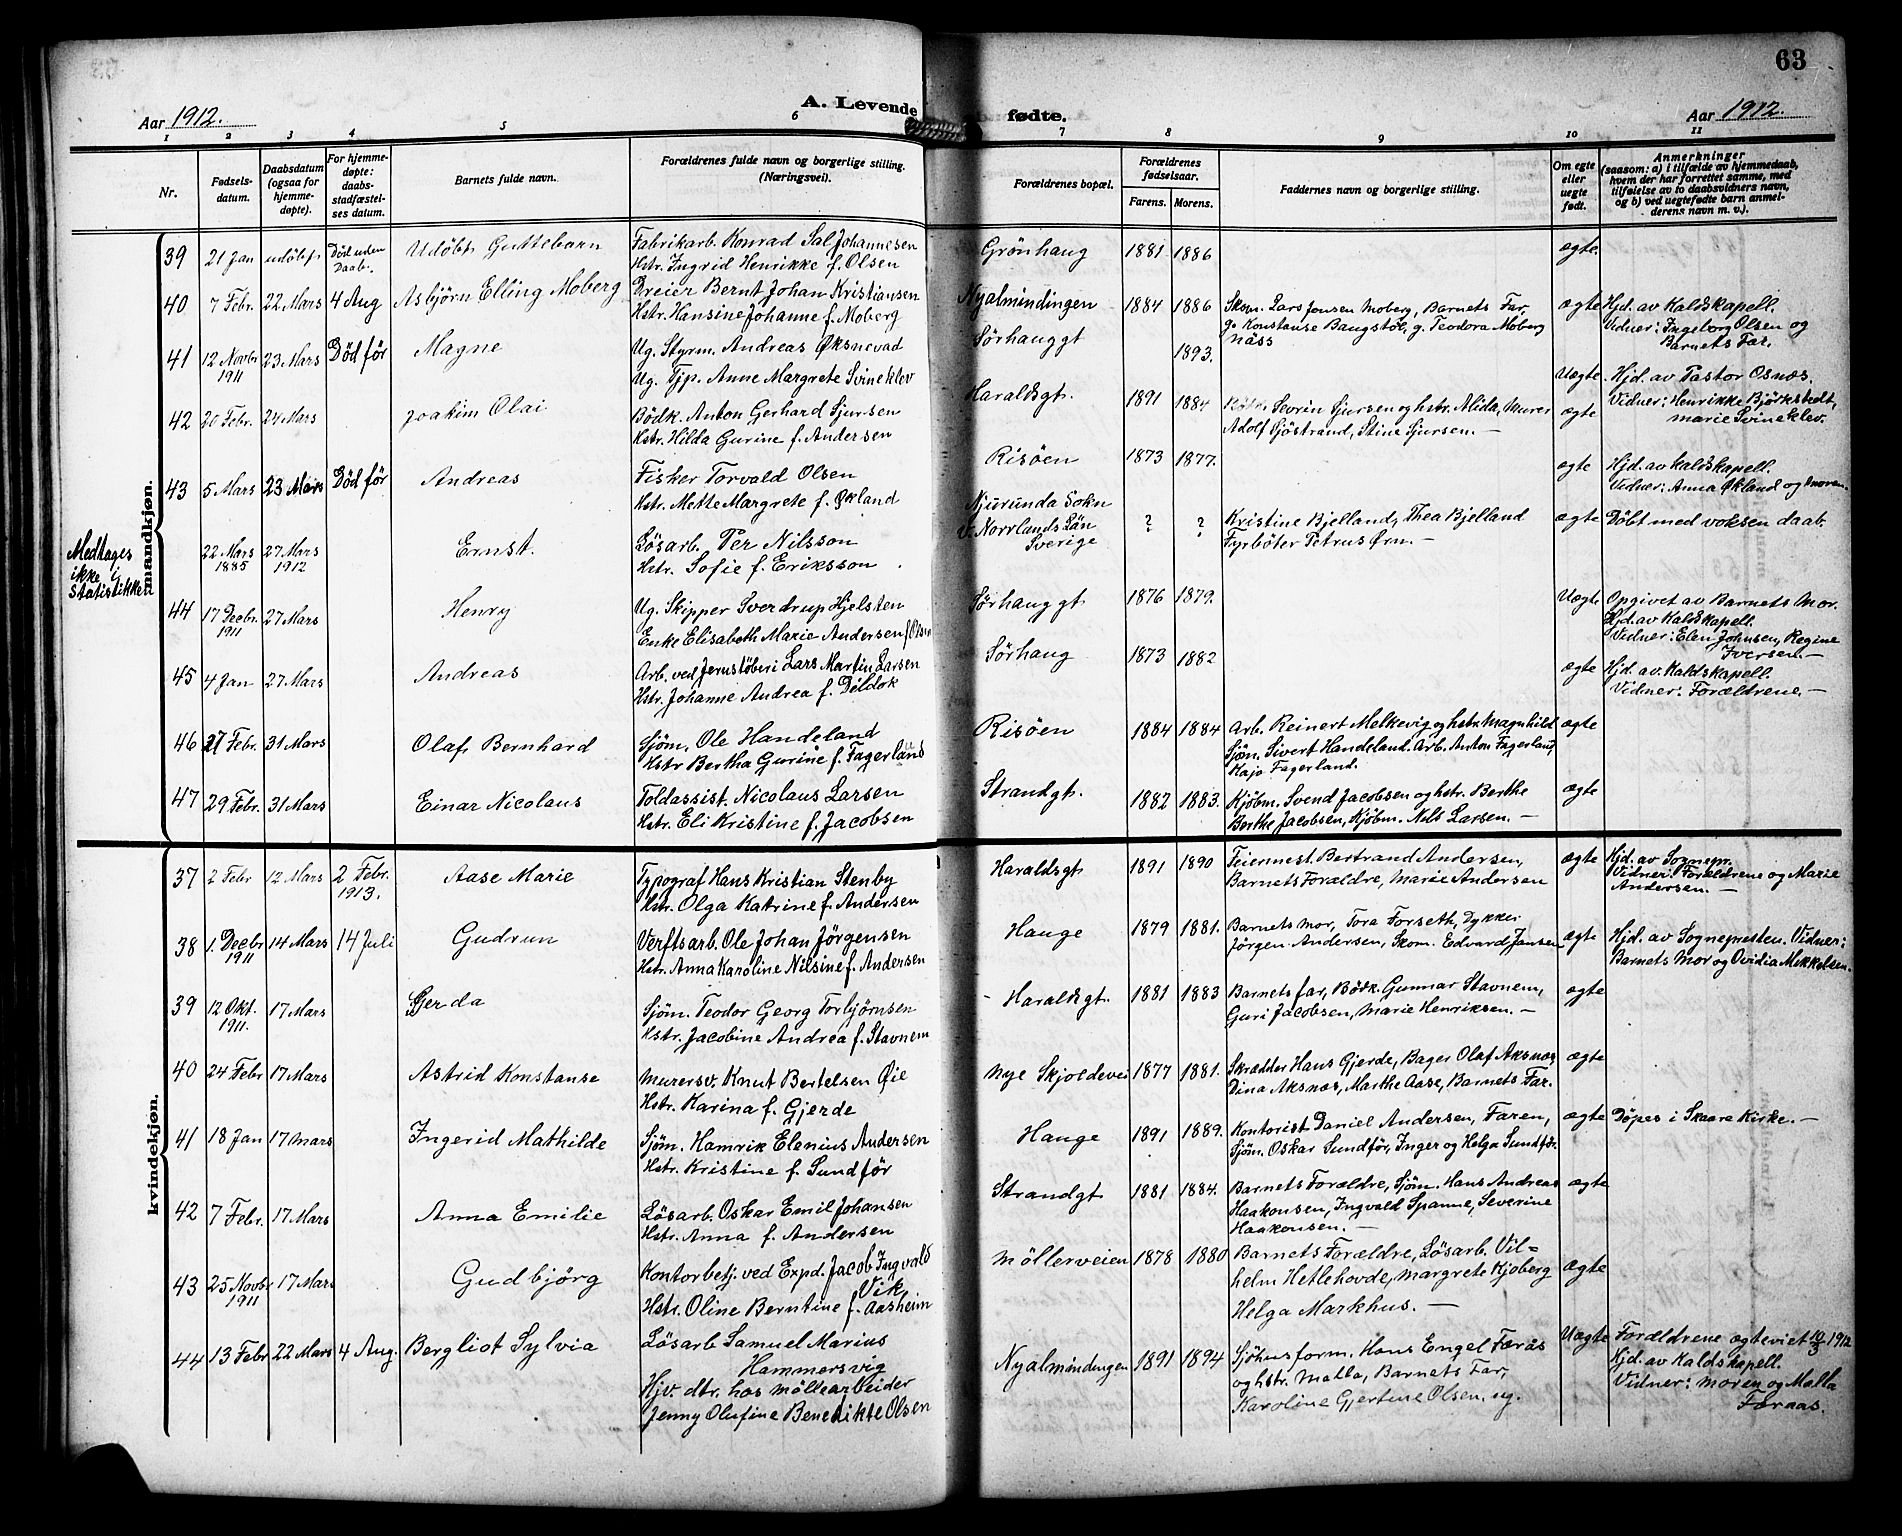 63
A. Levende fødte.
Aar 1912.
Aar 1912.
1 2 3 4 5 6 7 8 9 10 11
Nr.
Fødsels-
datum.
Daabsdatum
(ogsaa for
hjemme-
døpte).
For hjemme-
døpte:
daabs-
stadfæstel-
ses datum.
Barnets fulde navn.
Forældrenes fulde navn og borgerlige stilling.
(Næringsvei).
Forældrenes bopæl.
Forældrenes
fødselsaar.
Farens. Morens.
Faddernes navn og borgerlige stilling.
Om egte
eller
uegte
født.
Anmerkninger
(saasom: a) i tilfælde av hjemmedaab,
hvem der har forrettet samme, med
tilføielse av to daabsvidners navn,
og b) ved uegtefødte barn anmel-
derens navn m. v.).
mandkjøn.
39 21 Jan udöbt Död uden
Daab. Udöbt Guttebarn Fabrikarb. Konrad Sal Johannesen
Hstr. Ingrid Henrikke f. Olsen
Grönhaug 1881 1886 ægte.
40 7 Febr. 22 Mars 4 Aug Asbjörn Elling Moberg Dreier Bernt Johan Kristiansen
Hstr. Hansine Johanne f. Moberg
Nyalmindingen 1884 1886 Skom. Lars Jonsen Moberg, Barnets Far,
g. Konstanse Baugstöl, g. Teodora Moberg
näss
ægte Hjd. av Kaldskapell.
Vidner: Ingeborg Olsen og
Barnets Far.
41 12 Novbr
1911 23 Mars Död för Magne Ug. Styrm. Andreas Øksnevad
Ug. Tjp. Anne Margrete Svineklev
Sörhauggt 1893.
Uegte. Hjd. av Pastor Osnæs.
Vidner: Henrikke Björkstedt,
Marie Svineklev.
42 20 Febr. 24 Mars Joakim Olai Bödk. Anton Gerhard Sjursen
Hstr. Hilda Gurine f. Andersen
Haraldsgt. 1891 1884 Sevrin Sjursen og hstr. Alida, Murer
Adolf Sjöstrand, Stine Sjursen. —
ægte
43 5 Mars 23 Mars Död för Andreas Fisker Torvald Olsen
Hstr. Mette Margrete f. Økland
Risöen 1873 1877. ægte Hjd. av kaldskapell.
Vidner: Anna Økland og moren.
Medtages
ikke i
Statistikken
22 Mars
1885 27 Mars
1912 Ernst. Lösarb. Per Nilsson
Hstr. Sofie f. Eriksson
Njurunda Sokn
V. Norrlands Län
Sverige
? ? Kristine Bjelland, Thea Bjelland
Fyrböter Petrus Ørn. —
ægte Döbt med voksen daab.
44 17 Decbr.
1911 27 Mars Henry Ug. Skipper Sverdrup Hjelsten
Enke Elisabeth Marie Andersen f. Olsen
Sörhauggt 1876 1879. Uegte Opgivet av Barnets Mor.
Hjd. av Kaldskapell.
Vidner: Elen Johnsen, Regine
Iversen. —
45 4 Jan 27 Mars Andreas Arb. ved Jernstöberi Lars Martin Larsen
Hstr. Johanne Andrea f. Dildok
Sörhaug 1873 1882 ægte Hjd. av. Kaldskapell.
Vidner: Forældrene. —
46 27 Febr. 31 Mars Olaf Bernhard Sjöm. Ole Handeland
Hstr Bertha Gurine f. Fagerland
Risöen 1884 1884 Arb. Reinert Melkevig og hstr. Magnhild
Sjöm. Sivert Handeland. Arb. Anton Fagerland,
Kaja Fagerland.
ægte
47 29 Febr. 31 Mars Einar Nicolaus Toldassist. Nicolaus Larsen
Hstr. Eli Kristine f. Jacobsen
Strandgt. 1882 1883. Kjöbm. Svend Jacobsen og hstr. Berthe
Berthe Jacobsen, Kjöbm. Nils Larsen. —
ægte
kvindekjøn.
37 2 Febr 12 Mars 2 Febr.
1913. Aase Marie Typograf Hans Kristian Stenby
Hstr. Olga Katrine f. Andersen
Haraldsgt 1891 1890 Feiermest. Bertrand Andersen,
Barnets Forældre, Marie Andersen
ægte Hjd. av Sognepr.
Vidner: Forældrene og Marie
Andersen. —
38 1. Decbr
1911 14 Mars 14 Juli Gudrun Verftsarb. Ole Johan Jörgensen
Hstr. Anna Karoline Nilsine f. Andersen
Hauge 1879 1881. Barnets mor, Tora Forseth, Dykker
Jörgen Andersen, Skom. Edvard Jansen
ægte Hjd. av Sognepresten. Vidner:
Barnets Mor og Ovidia Mikkelsen.
39 12 Okt.
1911. 17 Mars Gerda Sjöm. Teodor Georg Torbjörnsen
Hstr. Jacobine Andrea f. Stavnem
Haraldsgt. 1881 1883 Barnets far, Bödk. Gunnar Stavnem,
Guri Jacobsen, Marie Henriksen. —
ægte
40 24 Febr 17 Mars Astrid Konstanse Murersv. Knut Bertelsen Øie
Hstr. Karina f. Gjerde
Nye Skjoldevei 1877 1881. Skrædder Hans Gjerde, Bager Olaf Aksnæs
Dina Aksnæs, Marthe Aase, Barnets Far.
ægte
41 18 Jan 17 Mars Ingerid Mathilde Sjöm. Hamrik Elenius Andersen
Hstr. Kristine f. Sundför
Hauge 1891 1889. Kontorist Daniel Andersen, Faren,
Sjöm. Oskar Sundför, Inger og Helga Sundför.
ægte Döpes i Skaare Kirke. —
42 7 Febr. 17 Mars Anna Emilie Lösarb. Oskar Emil Johansen
Hstr. Anna f. Andersen
Strandgt 1881 1884. Barnets Forældre, Sjöm. Hans Andreas
Haakonsen, Ingvald Spanne, Severine
Haakonsen. —
ægte
43 25 Novbr
1911 17 Mars Gudbjörg Kontorbetj. ved Exped. Jacob Ingvald
Vik
Hstr. Oline Berntine f. Aasheim
Möllerveien 1878 1880 Barnets Forældre, Lösarb. Vil=
helm Hetlehovde, Margrete Kjoberg
Helga Markhus. —
ægte
44 13 Febr 22 Mars 4 Aug. Bergliot Sylvia Lösarb Samuel Marius
Hammersvig
Hjv. dtr. hos möllearbeider
Jenny Olufine Benedikte Olsen
Nyalmindingen 1891 1894 Sjöhusform. Hans Engel Færås
og hstr. Malla, Barnets Far,
Karoline Gjertine Olsen. ug.
Uegte Forældrene egteviet 10/3 1912
Hjd. av Kaldskapell.
Vidner: Moren og Malla
Færaas.